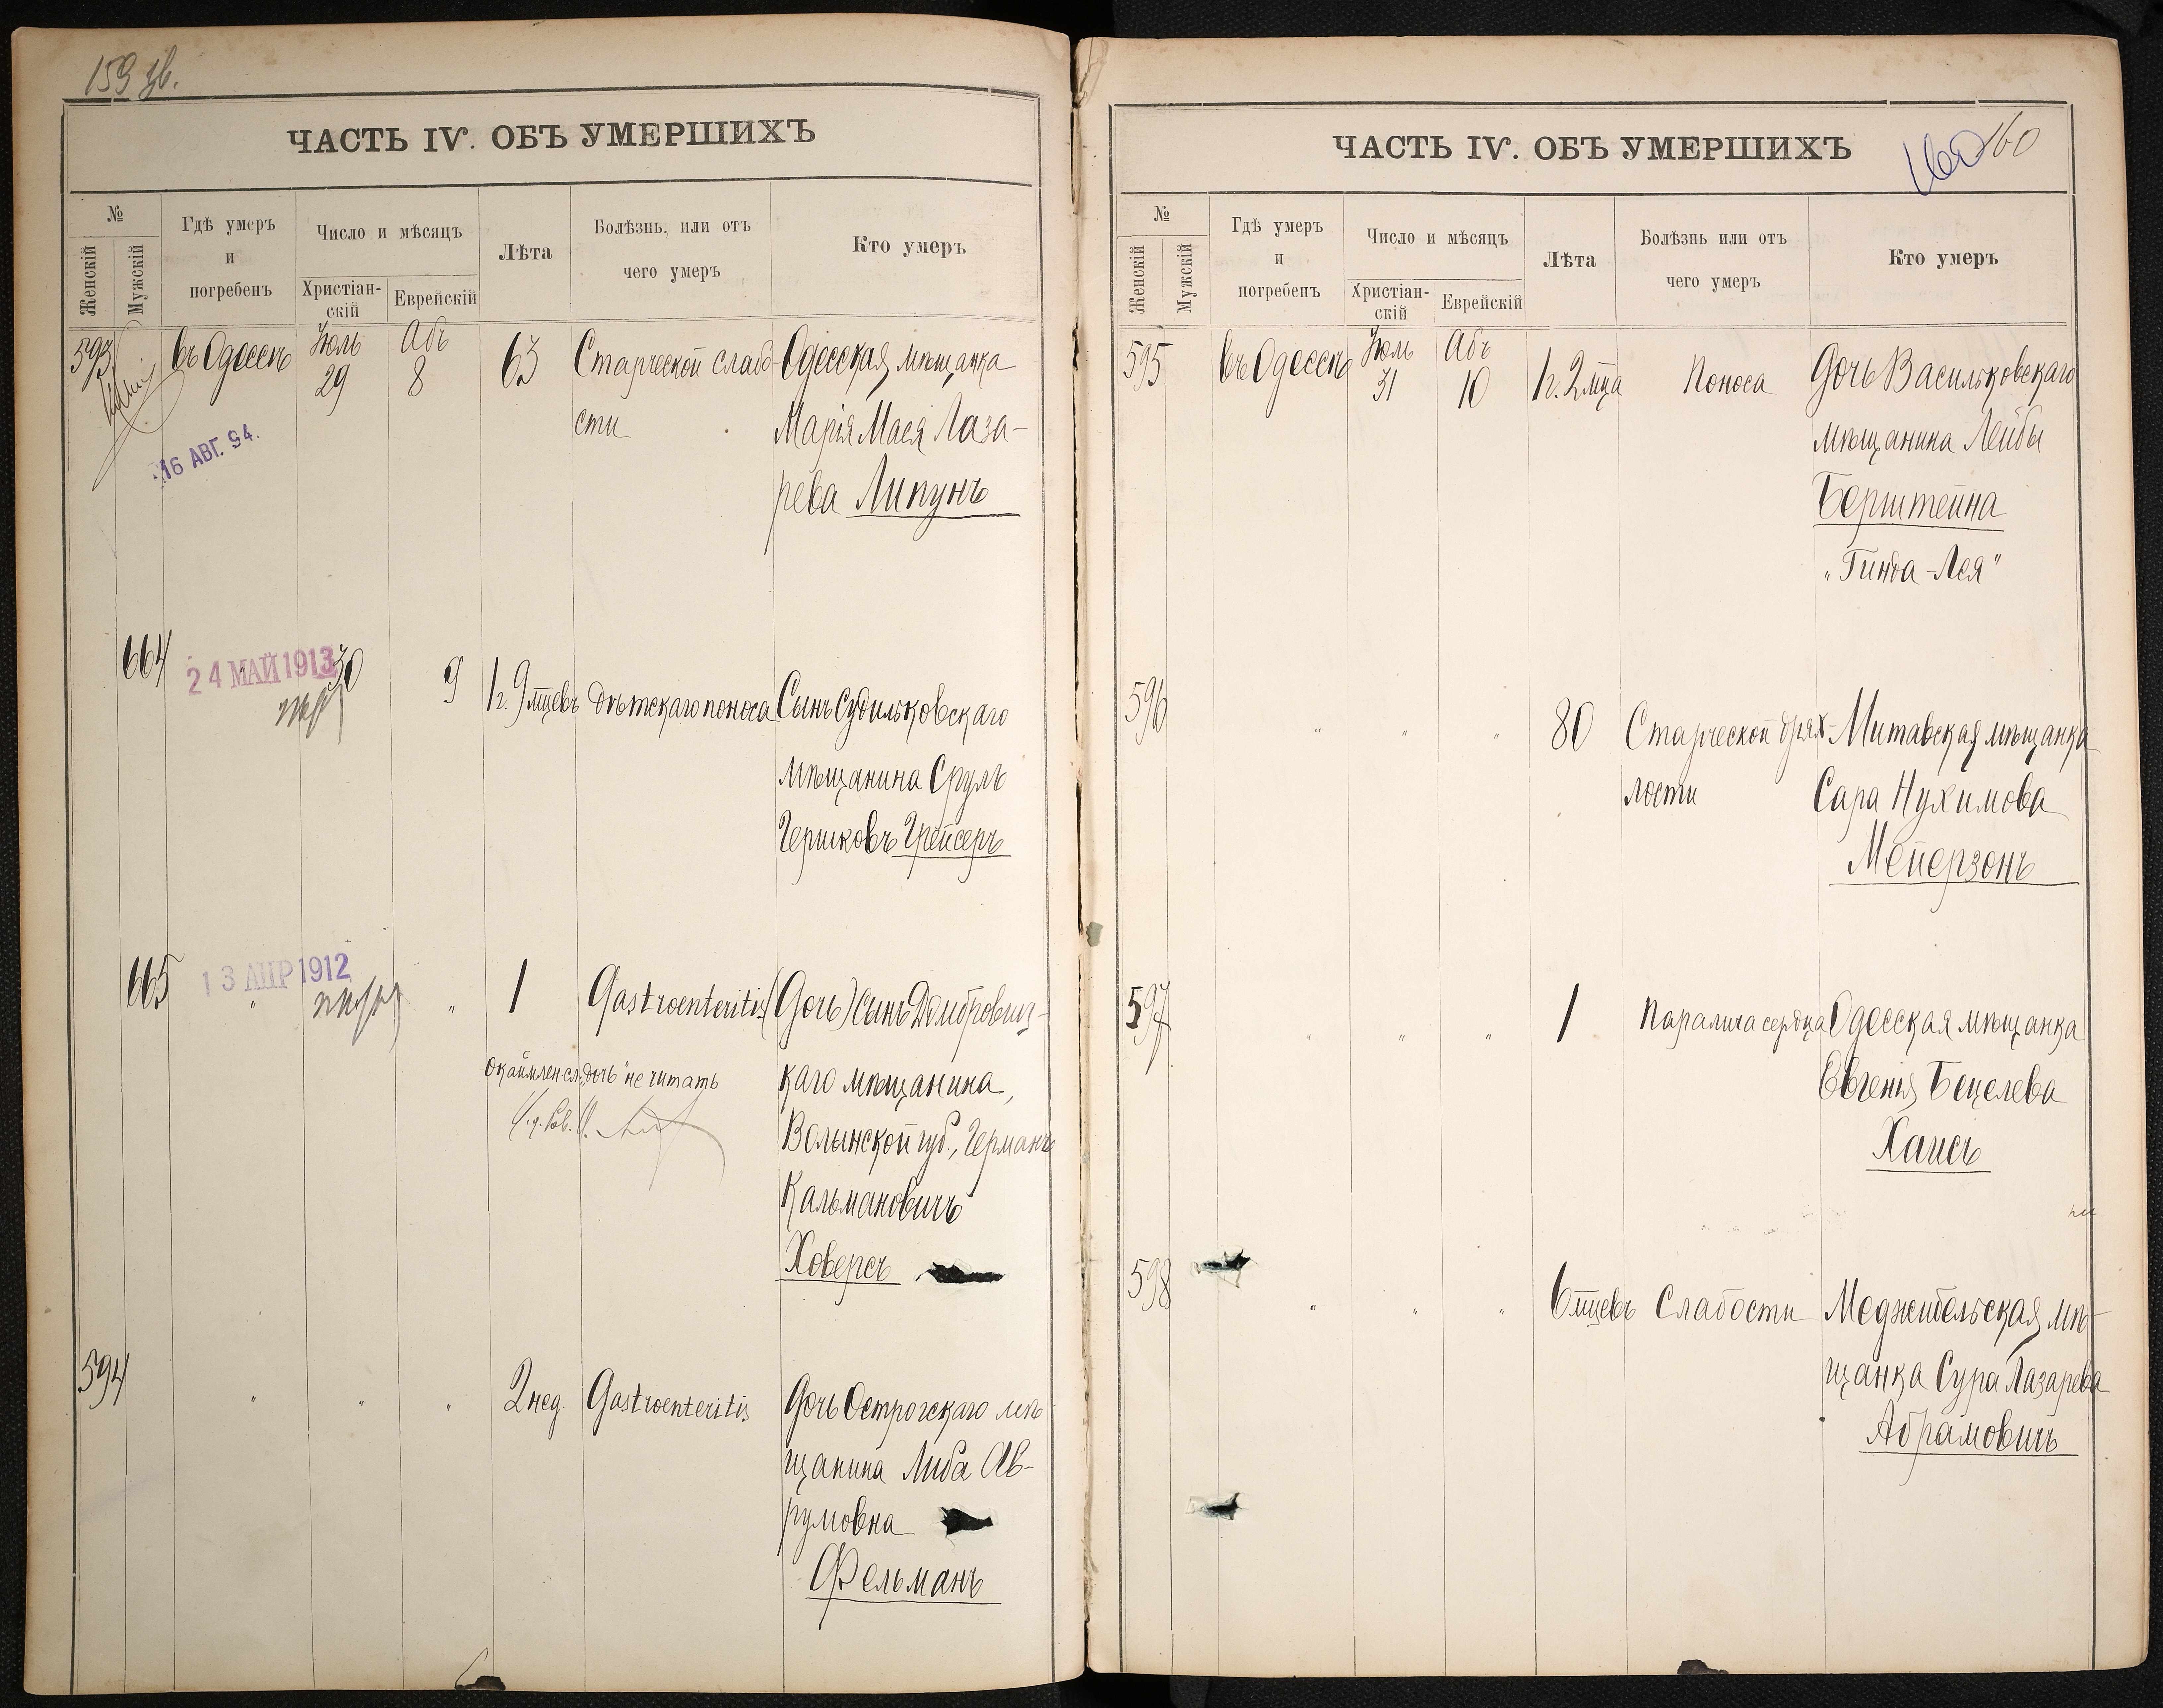 159 зв.
ЧАСТЬ IV. ОБЪ УМЕРШИХЪ
№
Женскій
Мужскій
Гдѣ умеръ
и
погребенъ
Число и мѣсяцъ
Христіан-
скій
Еврейскій
Лѣта
Болѣзнь, или отъ
чего умеръ
Кто умеръ
593
въ Одессѣ
Іюль
29
Абъ
8
63
Старческой слабо-
сти
Одесская мѣщанка
Марія Мася Лаза-
рева Липунъ
16 АВГ. 94.
664
24 МАЙ 1913
30
9
1 г. 9 мцевъ
дѣтскаго поноса
Сынъ Судилковскаго
мѣщанина Сруль
Гершковъ Грейсеръ
665
13 АПР 1912
" "
1
Gastroenteritis
(Дочь) Сынъ Домбровиц-
каго мѣщанина,
Волынской губ., Германъ
Кальмановичъ
Ховерсъ
Окаймлен. сл. "дочь" не читать
594
" " "
2 нед.
Gastroenteritis
Дочь Острогскаго мѣ-
щанина Либа Ав-
румовна
Фельманъ
ЧАСТЬ IV. ОБЪ УМЕРШИХЪ
160
160
№
Женскій
Мужскій
Гдѣ умеръ
и
погребенъ
Число и мѣсяцъ
Христіан-
скій
Еврейскій
Лѣта
Болѣзнь или отъ
чего умеръ
Кто умеръ
595
въ Одессѣ
Іюль
31
Абъ
10
1 г. 2 мца
Поноса
Дочь Васильковскаго
мѣщанина Лейбы
Берштейна
"Гинда-Лея"
596
" " "
80
Старческой дрях-
лости
Митавская мѣщанка
Сара Нухимова
Мейерзонъ
597
" " "
1
Паралича сердца
Одесская мѣщанка
Евгенія Бецелева
Хаисъ
598
" " "
6 мцевъ
Слабости
Меджибельская мѣ-
щанка Сура Лазарева
Абрамовичъ